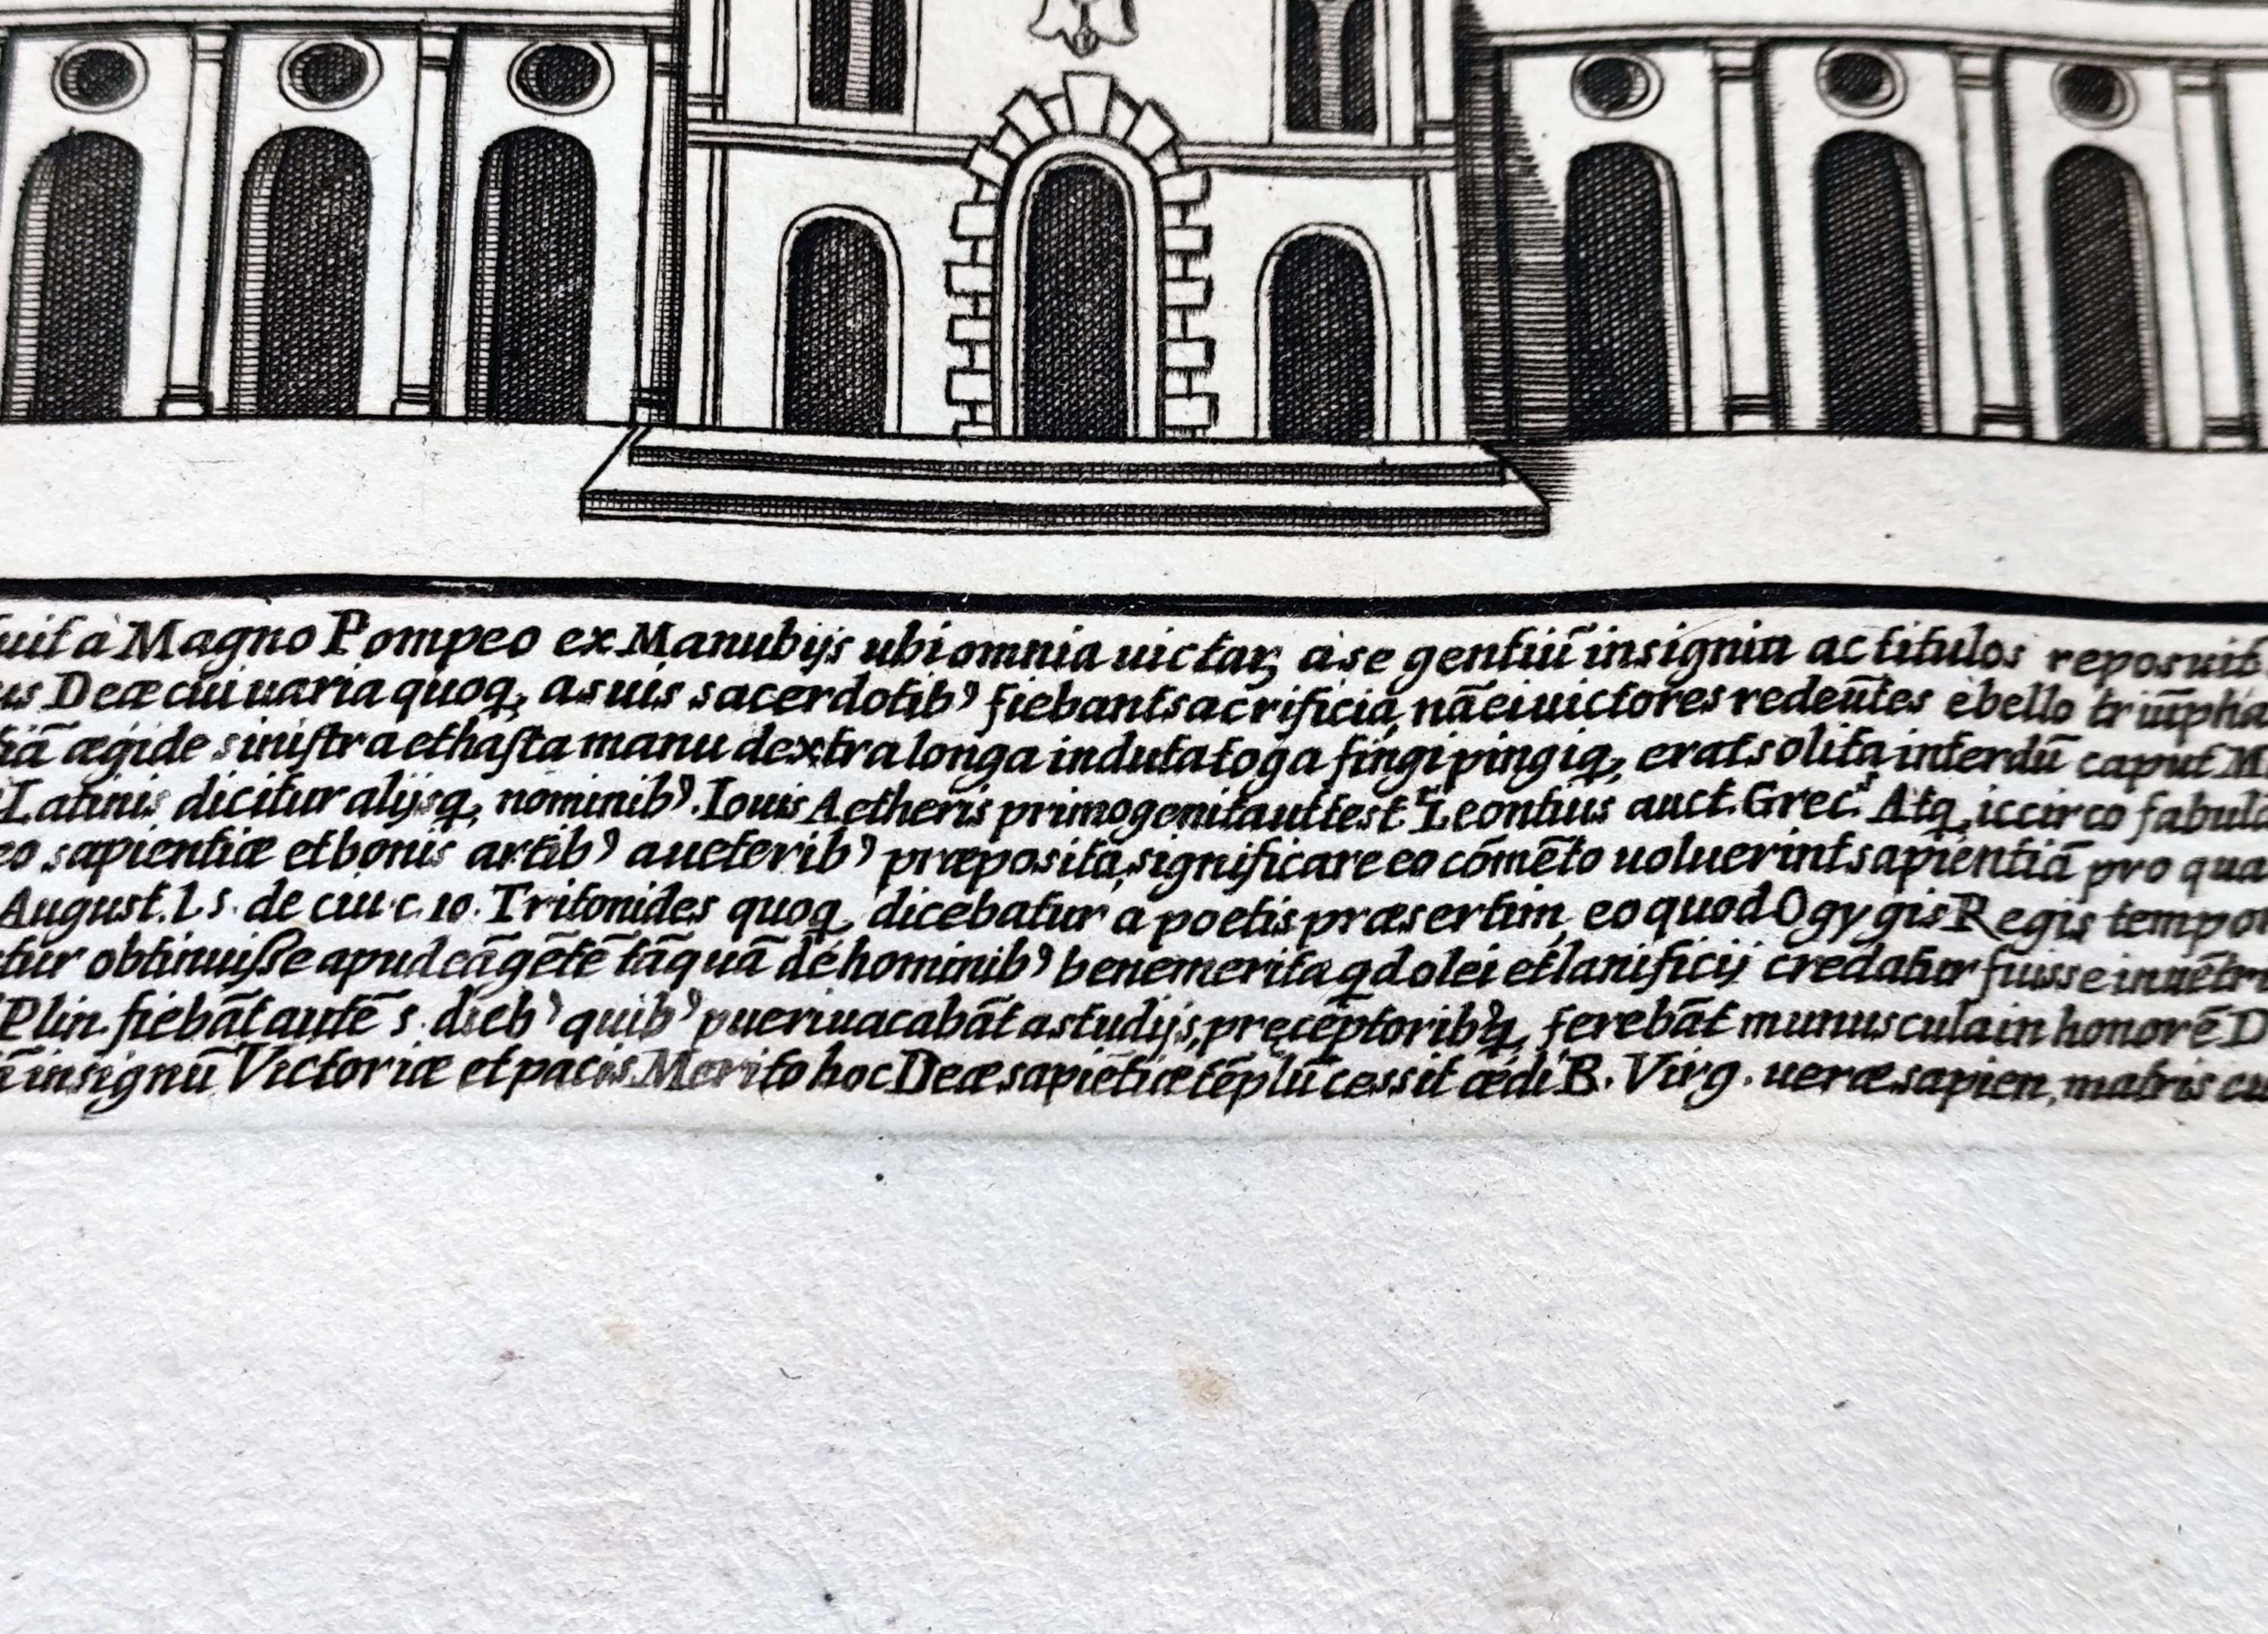 à Magno Pompeo ex Manubijs ubi omnia uictar, a se gentiũ insignia ac titulos reposuit
Deæ cui uaria quoq, a suis sacerdotib⁹ fiebant sacrificia, nã ei uictores redeũtes è bello
ægide sinistra et hasta manu dextra longa induta toga fingi pingiq, erat solita interdũ caput
Latinis dicitur alijsq, nominib⁹. Iouis Aetheris primogenita ut test. Leontius auct. Grec.⁹ Atq, iccirco
sapientiæ et bonis artib⁹ aucterib⁹ præposita, significare eo cõmẽto uoluerint sapientiã pro qua
August. l s. de ciu. c. 10. Tritonides quoq, dicebatur a poetis præsertim, eo quod Ogygis Regis
obtinuisse apud eã gẽtẽ tãquã de hominib⁹ benemerita qd olei et lanificij credatur fuisse
Plin. fiebãt autẽ s. dieb⁹ quib⁹ pueri uacabãt a studijs, pręcẽptorib⁹q, ferebãt munuscula in honorẽ
insignũ Victoriæ et pacis Merito hoc Deæ sapiẽtiæ tẽplũ cessit ædi B. Virg. ueræ sapien, matris